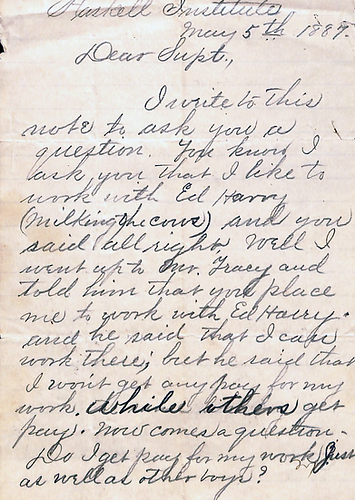 Haskell Institute,
May 5th 1889.
Dear Supt.,
I write to this
note to ask you a
question. You know I
ask you that I like to
work with Ed Harry
(milking the cows) and you
said all right. Well I
went up to Mr. Tracy and
told him that you place
me to work with Ed Harry.
and he said that I can
work there; but he said that
I won't get any pay for my
work. While others get
pay. Now comes a question-
Do I get pay for my work Just
as well as other boys?